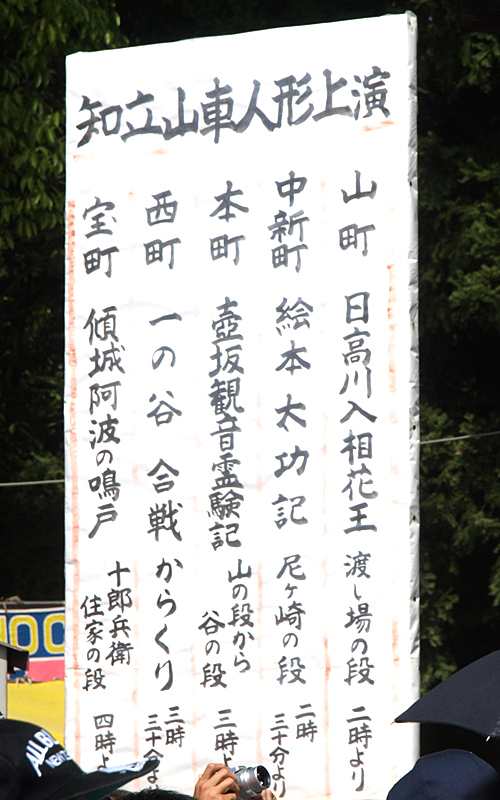 知立山車人形上演
山町
日高川入相花王
渡し場の段
二時より
中新町
絵本太功記
尼ヶ崎の段
二時
三十分より
本町
壺坂観音霊験記
山の段から
谷の段
三時よ
西町
一の谷合戦
からくり
三時
三十分よ
宝町
傾城阿波の鳴戸
十郎兵衛
住家の段
四時よ